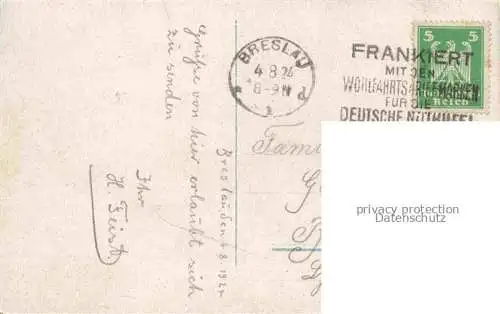 Grüße von hier erlaubt sich
zu senden
Ihr
H. Feist
Breslau den 4.8.1924
BRESLAU
4.8.24
8-9N
FRANKIERT
MIT DEN
WOHLFAHRTSBRIEFMARKEN
FÜR DIE
DEUTSCHE NOTHILFE!
5
5
Reich
privacy protection
Datenschutz